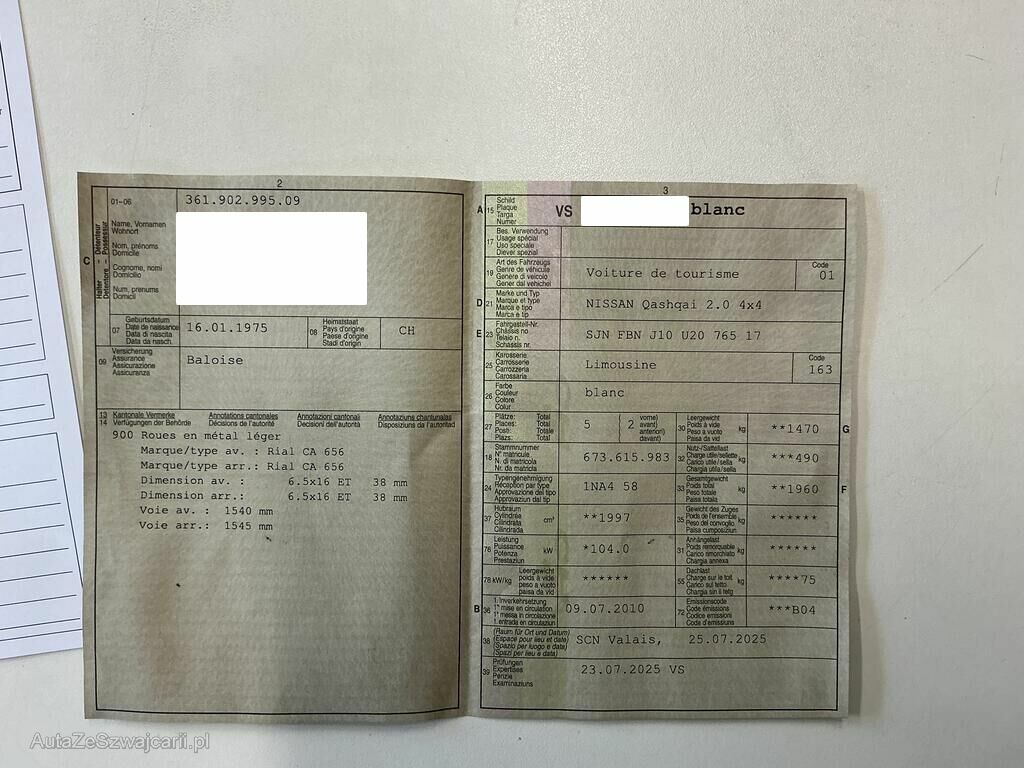 2
01-06
361.902.995.09
C
Halter – Détenteur
Detentore – Possessur
Name, Vornamen
Wohnort
Nom, prénoms
Domicile
Cognome, nomi
Domicilio
Num, prenums
Domicil
07
Geburtsdatum
Date de naissance
Data di nascita
Data da nasch.
16.01.1975
08
Heimatstaat
Pays d'origine
Paese d'origine
Stadi d'origin
CH
09
Versicherung
Assurance
Assicurazione
Assicuranza
Baloise
13
14
Kantonale Vermerke
Verfügungen der Behörde
Annotations cantonales
Décisions de l'autorité
Annotazioni cantonali
Decisioni dell'autorità
Annotaziuns chantunalas
Disposiziuns da l'autoritad
900 Roues en métal léger
Marque/type av. : Rial CA 656
Marque/type arr.: Rial CA 656
Dimension av. : 6.5x16 ET 38 mm
Dimension arr.: 6.5x16 ET 38 mm
Voie av. : 1540 mm
Voie arr.: 1545 mm
3
A
15
Schild
Plaque
Targa
Numer
VS
blanc
17
Bes. Verwendung
Usage spécial
Uso speciale
Diever spezial
19
Art des Fahrzeugs
Genre de véhicule
Genere di veicolo
Gener dal vehichel
Voiture de tourisme
Code
01
D
21
Marke und Typ
Marque et type
Marca e tipo
Marca e tip
NISSAN Qashqai 2.0 4x4
E
23
Fahrgestell-Nr.
Châssis no
Telaio n.
Schassis nr.
SJN FBN J10 U20 765 17
25
Karosserie
Carrosserie
Carrozzeria
Carossaria
Limousine
Code
163
26
Farbe
Couleur
Colore
Colur
blanc
27
Plätze: Total
Places: Total
Posti: Totale
Plazs: Total
5
( vorne)
2 avant)
anteriori)
davant)
30
Leergewicht
Poids à vide
Peso a vuoto
Paisa da vid
kg
**1470
G
18
Stammnummer
N° matricule
N. di matricola
Nr. da matricla
673.615.983
32
Nutz-/Sattellast
Charge utile/sellette
Carico utile/sella
Chargia utila/sella
kg
***490
24
Typengenehmigung
Réception par type
Approvazione del tipo
Approvaziun dal tip
1NA4 58
33
Gesamtgewicht
Poids total
Peso totale
Paisa totala
kg
**1960
F
37
Hubraum
Cylindrée
Cilindrata
Cilindrada
cm³
**1997
35
Gewicht des Zuges
Poids de l'ensemble
Peso del convoglio
Paisa cumposiziun
kg
******
76
Leistung
Puissance
Potenza
Prestaziun
kW
*104.0
31
Anhängelast
Poids remorquable
Carico rimorchiato
Chargia annexa
kg
******
78
kW/kg
Leergewicht
poids à vide
peso a vuoto
paisa da vid
******
55
Dachlast
Charge sur le toit
Carico sul tetto
Chargia sin il tetg
kg
****75
B
36
1. Inverkehrsetzung
1re mise en circulation
1a messa in circolazione
1. entrada en circulaziun
09.07.2010
72
Emissionscode
Code émissions
Codice emissioni
Code d'emissiuns
***B04
38
(Raum für Ort und Datum)
(Espace pour lieu et date)
(Spazio per luogo e data)
(Spazi per lieu e data)
SCN Valais, 25.07.2025
39
Prüfungen
Expertises
Perizie
Examinaziuns
23.07.2025 VS
AutaZeSzwajcarii.pl